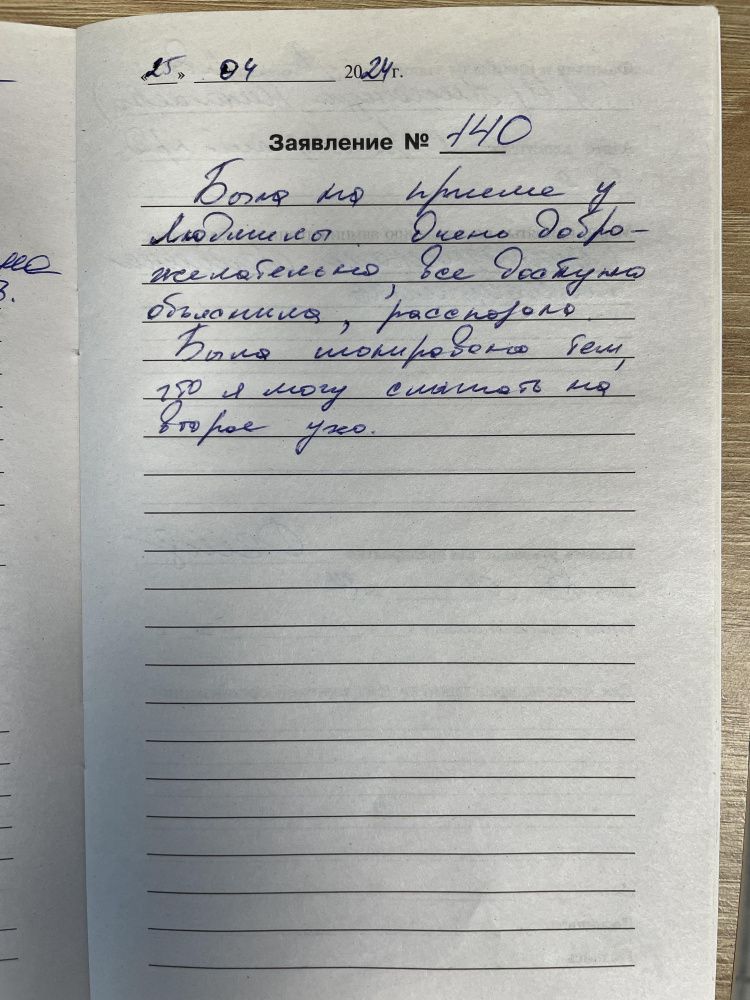 «25» 04 2024г.
Заявление № 140
Была на приеме у
Людмилы. Очень добро-
желательно, все доступно
объяснила, рассказала.
Была шокирована тем,
что я могу слышать на
второе ухо.